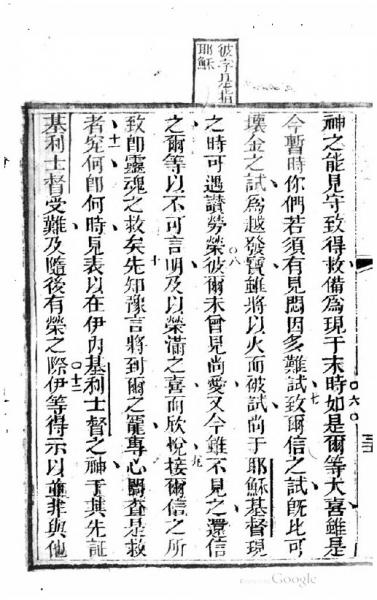 彼字是指
耶穌
神之能見守致得救備為現于末時○六如是爾等大喜雖是
今暫時你們若須有見悶因多難試七致爾信之試既比可
壞金之試為越發寶雖將以火而被試尚于耶穌基督現
之時可遇讚勞榮○八彼爾未曾見尚愛又今雖不見之還信
之爾等以不可言明及以榮滿之喜而欣悅九接爾信之所
致即靈魂之救矣十先知豫言將到爾之寵專心騐查是救
者十一究何即何時見表以在伊內基利士督之神于其先証
基利士督受難及隨後有榮之際○十二伊等得示以葢非與他
Google